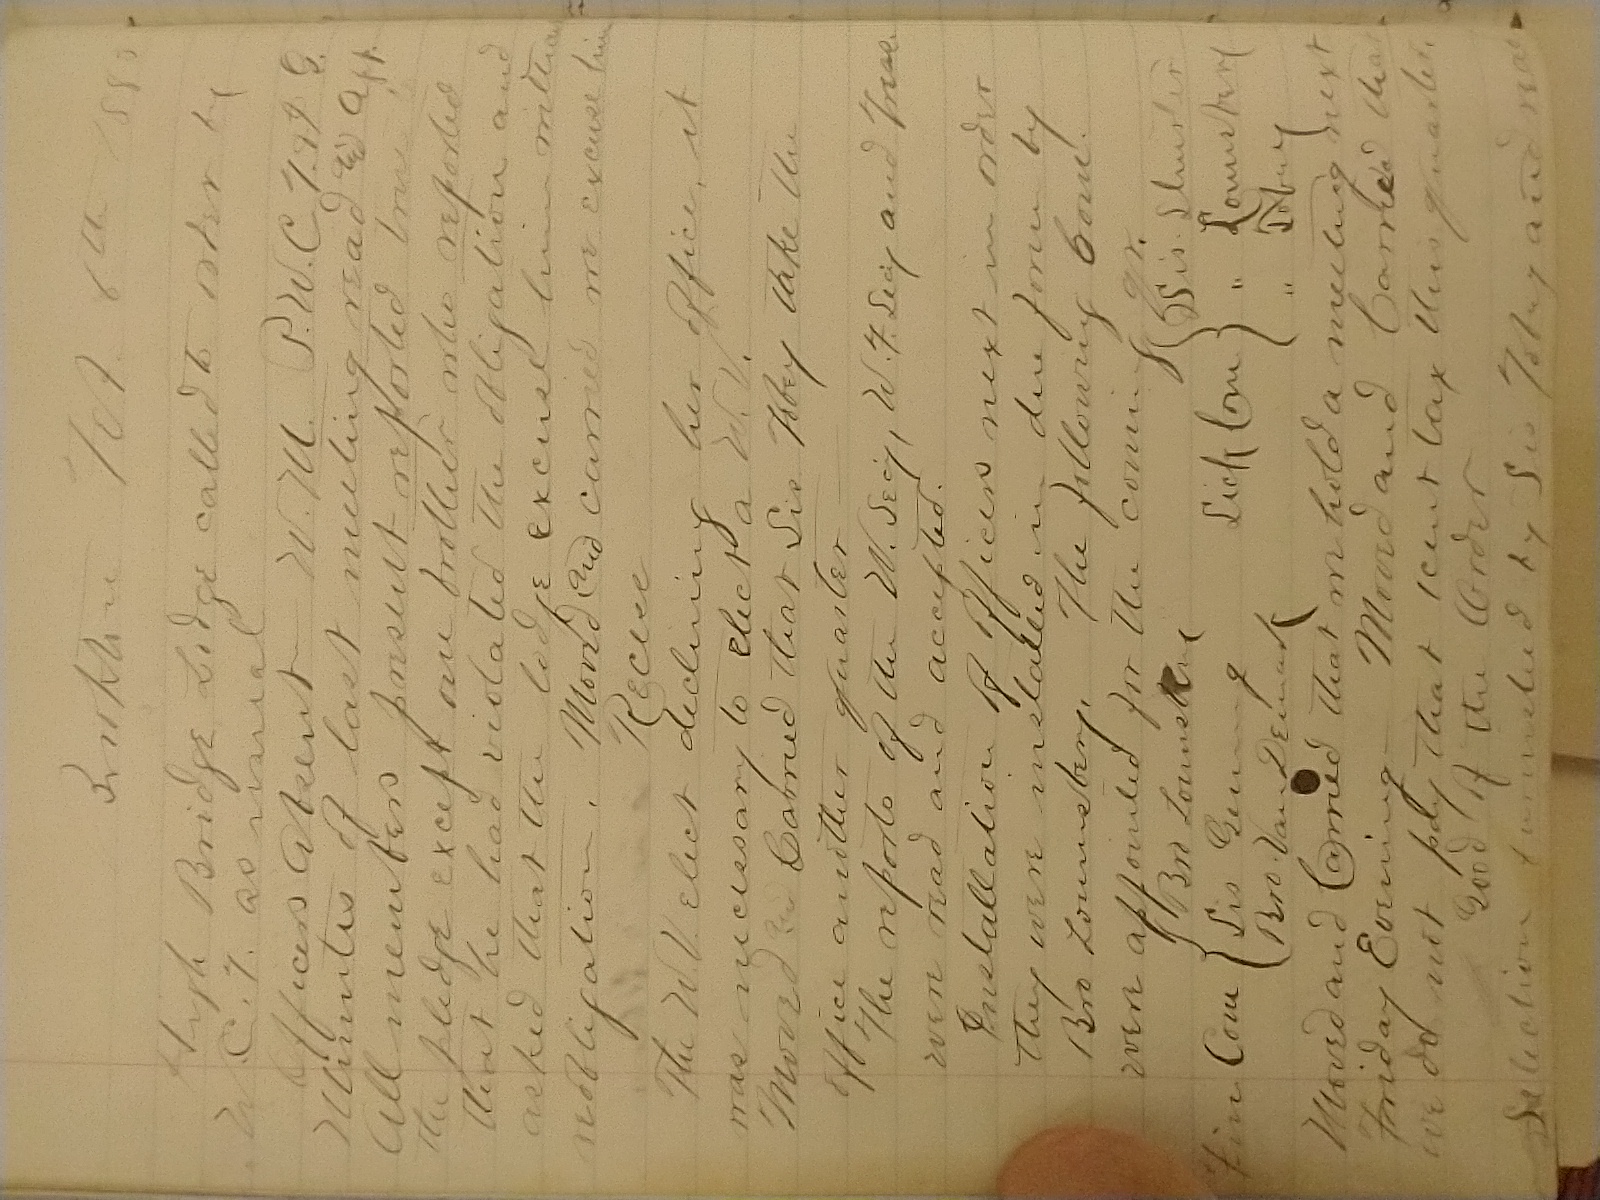 Feb. 6th 188
High Bridge Lodge called to order by
W.C.T. as usual
Officers Absent W.M. P.W.C.T. & I.G.
Minutes of last meeting read & app.
All members present reported true to
the pledge except one brother who reported
that he had violated the obligation and
asked that the lodge excuse him without
reobligation. Moved and carried we excuse him
Recess
The W.V. elect declining her office, it
was necessary to elect a W.V.
Moved and Carried that Sis Tobey take the
office another quarter
The reports of the W. Secy, W.F. Secy and Treas.
were read and accepted.
Installation of officers next in order
They were installed in due form by
Bro Lounsbery. The following Coms.
were appointed for the coming qr.
Bro Lounsbery Sis.
Fin Com Sis Sick Com " Lounsbery
Bro. Van Demark " Tobey
Moved and Carried that we hold a meeting next
Friday Evening Moved and Carried that
we do not pay that cent tax this quarter.
Good of the Order
Selection furnished by Sis Tobey and read